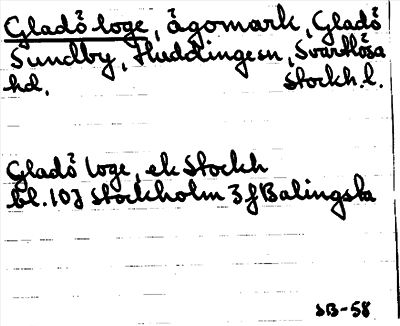 Gladö loge, ägomark, Gladö
Sundby, Huddinge sn, Svartlösa
hd. Stockh. l.
Gladö loge, ek Stockh
bl. 10J Stockholm 3f Balingsta
SB-58